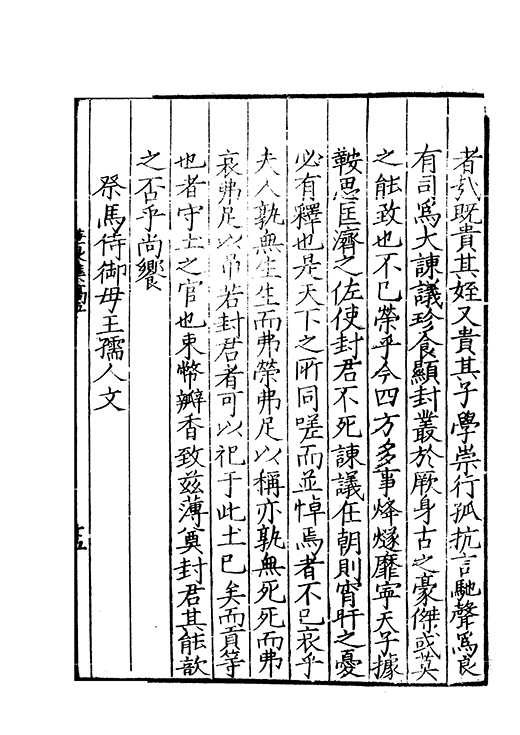 者哉既貴其姪又貴其子學崇行孤抗言馳聲爲良
有司爲大諫議珍食顯封叢於厥身古之豪傑或莫
之能致也不已榮乎今四方多事烽燧靡寧天子據
鞍思匡濟之佐使封君不死諫議在朝則宵旰之憂
必有釋也是天下之所同嗟而並悼焉者不已哀乎
夫人孰無生生而弗榮弗足以稱亦孰無死死而弗
哀弗足以吊若封君者可以祀于此土已矣而貢等
也者守土之官也束幣瓣香致玆薄奠封君其能歆
之否乎尚饗
祭馬侍御母王孺人文